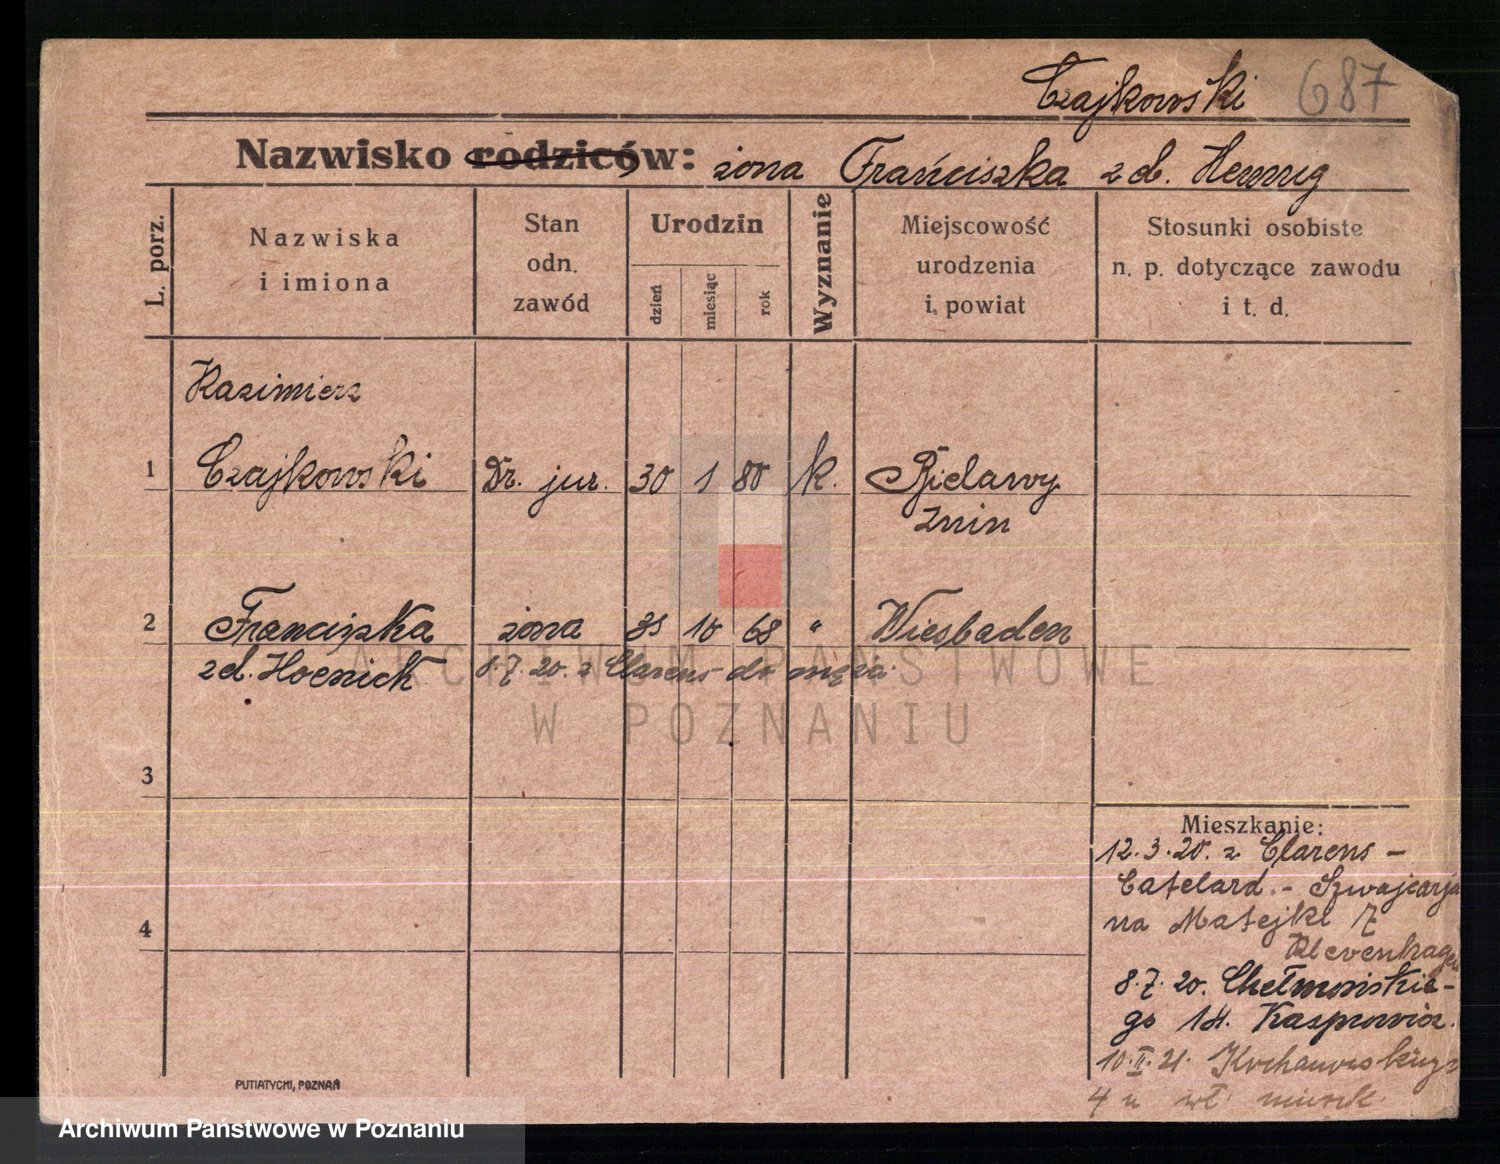 Czajkowski 687
Nazwisko rodziców: żona Franciszka zd. Hennig
L. porz.
Nazwiska i imiona
Stan odn. zawód
Urodzin
dzień
miesiąc
rok
Wyznanie
Miejscowość urodzenia i powiat
Stosunki osobiste n. p. dotyczące zawodu i t. d.
Kazimierz
1 Czajkowski Dr. jur. 30 1 80 k. Bielawy
Żnin
2 Franciszka żona 10 68 " Wiesbaden
zd. Hoenick 8.7.20. z Clarens do męża
3
4
Mieszkanie:
12.3.20. z Clarens –
Catelard. – Szwajcarja
na Matejki 7
Klevenhagen
8.7.20. Chełmońskie-
go 14. Kasprowicz.
10.II.21.
4 u wł. mieszk.
PUTIATYCKI, POZNAŃ
ARCHIWUM PAŃSTWOWE
W POZNANIU
Archiwum Państwowe w Poznaniu